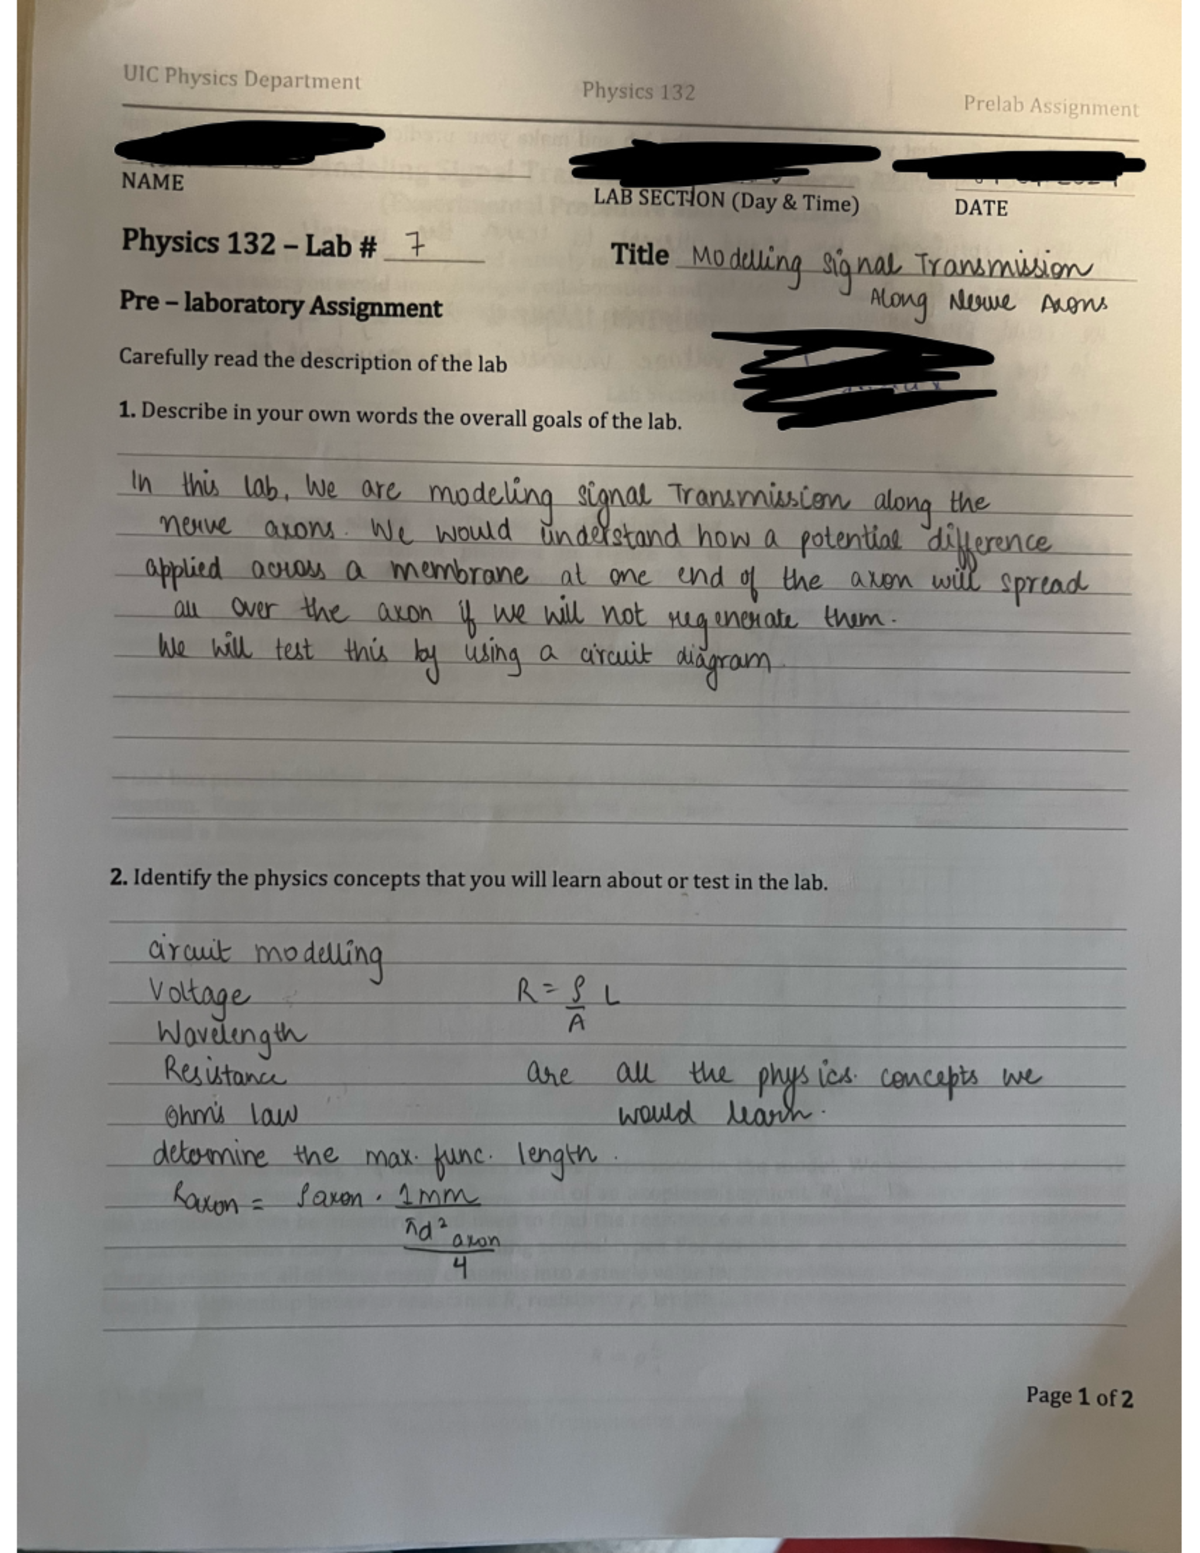 UIC Physics Department Physics 132 Prelab Assignment
NAME LAB SECTION (Day & Time) DATE
Physics 132 – Lab # 7 Title Modelling Signal Transmission
Along Nerve Axons
Pre – laboratory Assignment
Carefully read the description of the lab
1. Describe in your own words the overall goals of the lab.
In this lab, we are modeling signal Transmission along the
nerve axons. We would understand how a potential difference
applied across a membrane at one end of the axon will spread
all over the axon if we will not regenerate them.
We will test this by using a circuit diagram
2. Identify the physics concepts that you will learn about or test in the lab.
circuit modelling
Voltage R = ρ/A L
Wavelength
Resistance are all the physics. concepts we
Ohm's law would learn.
determine the max. func. length.
Raxon = ρaxon · 1mm
πd² axon
4
Page 1 of 2